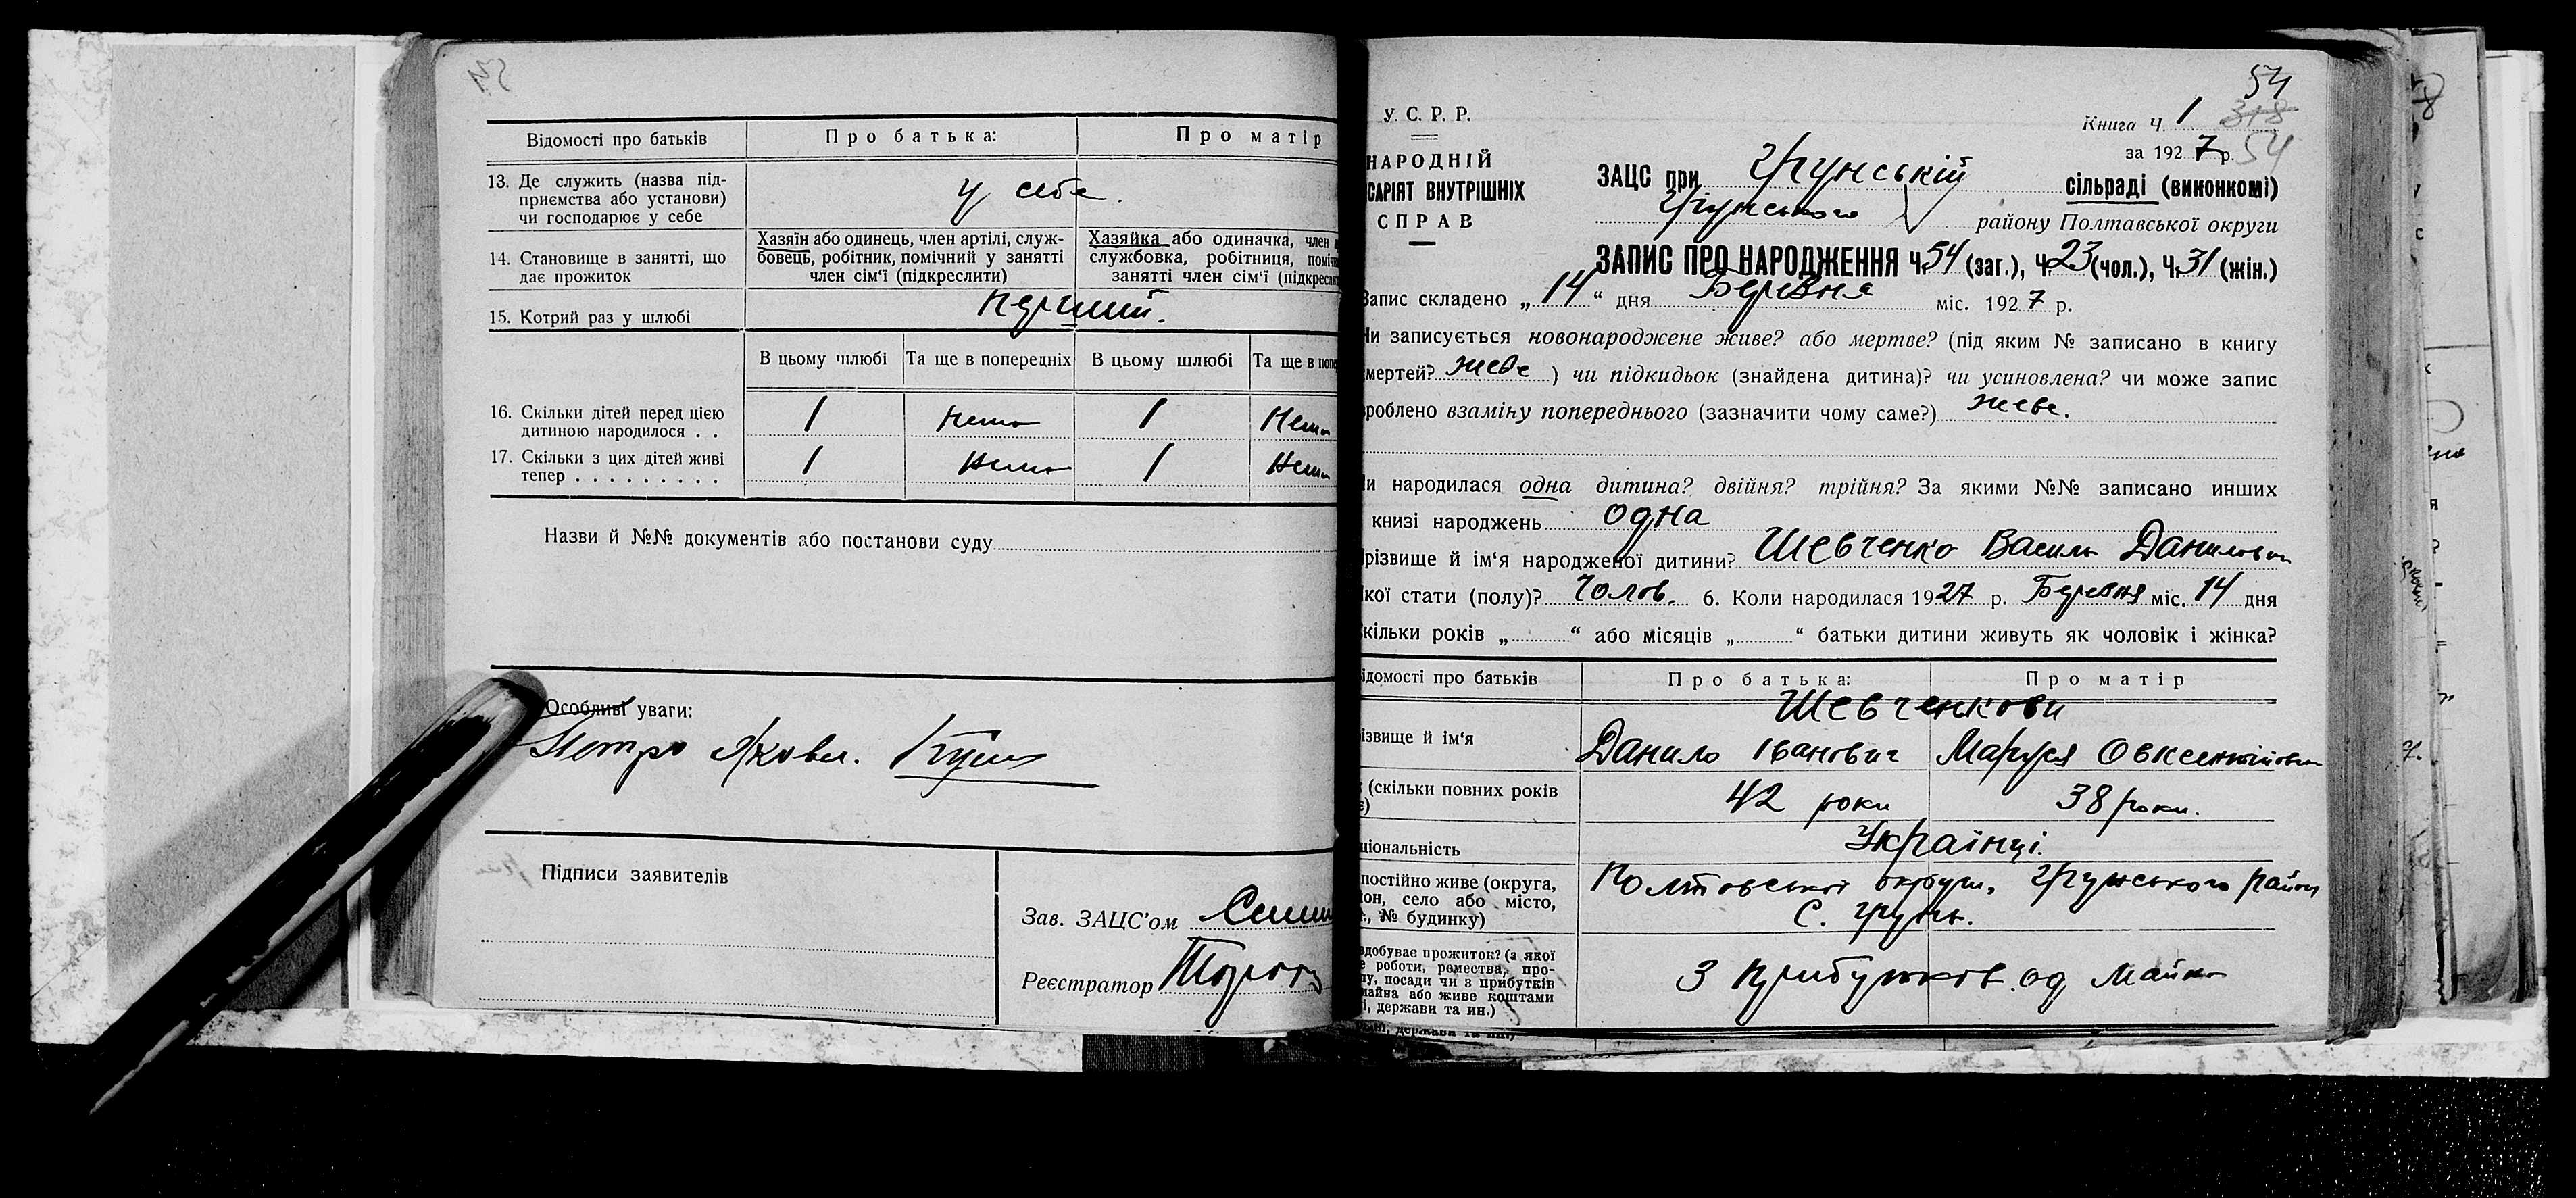 54
Відомості про батьків
Про батька:
Про матір
13. Де служить (назва під-
приємства або установи)
чи господарює у себе
у себе.
14. Становище в занятті, що
дає прожиток
Хазяїн або одинець, член артілі, служ-
бовець, робітник, помічний у занятті
член сім'ї (підкреслити)
Хазяйка або одиначка, член
службовка, робітниця, поміч
занятті член сім'ї (підкресл
15. Котрий раз у шлюбі
перший.
В цьому шлюбі
Та ще в попередніх
В цьому шлюбі
Та ще в попе
16. Скільки дітей перед цією
дитиною народилося . .
1 нема 1 нема
17. Скільки з цих дітей живі
тепер . . . . . . . . .
1 нема 1 нема
Назви й №№ документів або постанови суду
Особливі уваги:
Петро Яковл.
Підписи заявителів
Зав. ЗАЦС'ом
Реєстратор
54
У. С. Р. Р.
Книга Ч. 1 318
за 1927 р. 54
НАРОДНІЙ
САРІЯТ ВНУТРІШНІХ
СПРАВ
ЗАЦС при Грунській сільраді (виконкомі)
Грунського району Полтавської округи
ЗАПИС ПРО НАРОДЖЕННЯ Ч. 54 (заг.), Ч. 23 (чол.), Ч. 31 (жін.)
Запис складено „ 14 “ дня Березня міс. 1927 р.
Чи записується новонароджене живе? або мертве? (під яким № записано в книгу
смертей? живе ) чи підкидьок (знайдена дитина)? чи усиновлена? чи може запис
зроблено взаміну попереднього (зазначити чому саме?) живе.
и народилася одна дитина? двійня? трійня? За якими №№ записано инших
книзі народжень одна
Прізвище й ім'я народженої дитини? Шевченко Василь Данилович
кої стати (полу)? Чолов. 6. Коли народилася 1927 р. Березня міс. 14 дня
кільки років „ “ або місяців „ “ батьки дитини живуть як чоловік і жінка?
ідомості про батьків
Про батька:
Про матір
Шевченкови
ізвище й ім'я
Данило Іванович
Маруся Овксентіївн
(скільки повних років
42 роки
38 роки.
ціональність
Українці.
постійно живе (округа,
он, село або місто,
., № будинку)
Полтавської округи, Грунського район
С. Грунь.
здобуває прожиток? (з якої
е роботи, ремества, про-
лу, посади чи з прибутків
майна або живе коштами
і, держави та ин.)
З прибутків од майна